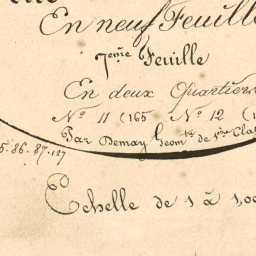 En neuf Feuille
7ème Feuille
En deux Quartiers
No 11 (165 No 12 (
Par Demay Géomtre de 1ère Cla
5.86.87.127
Echelle de 1 à 1,00